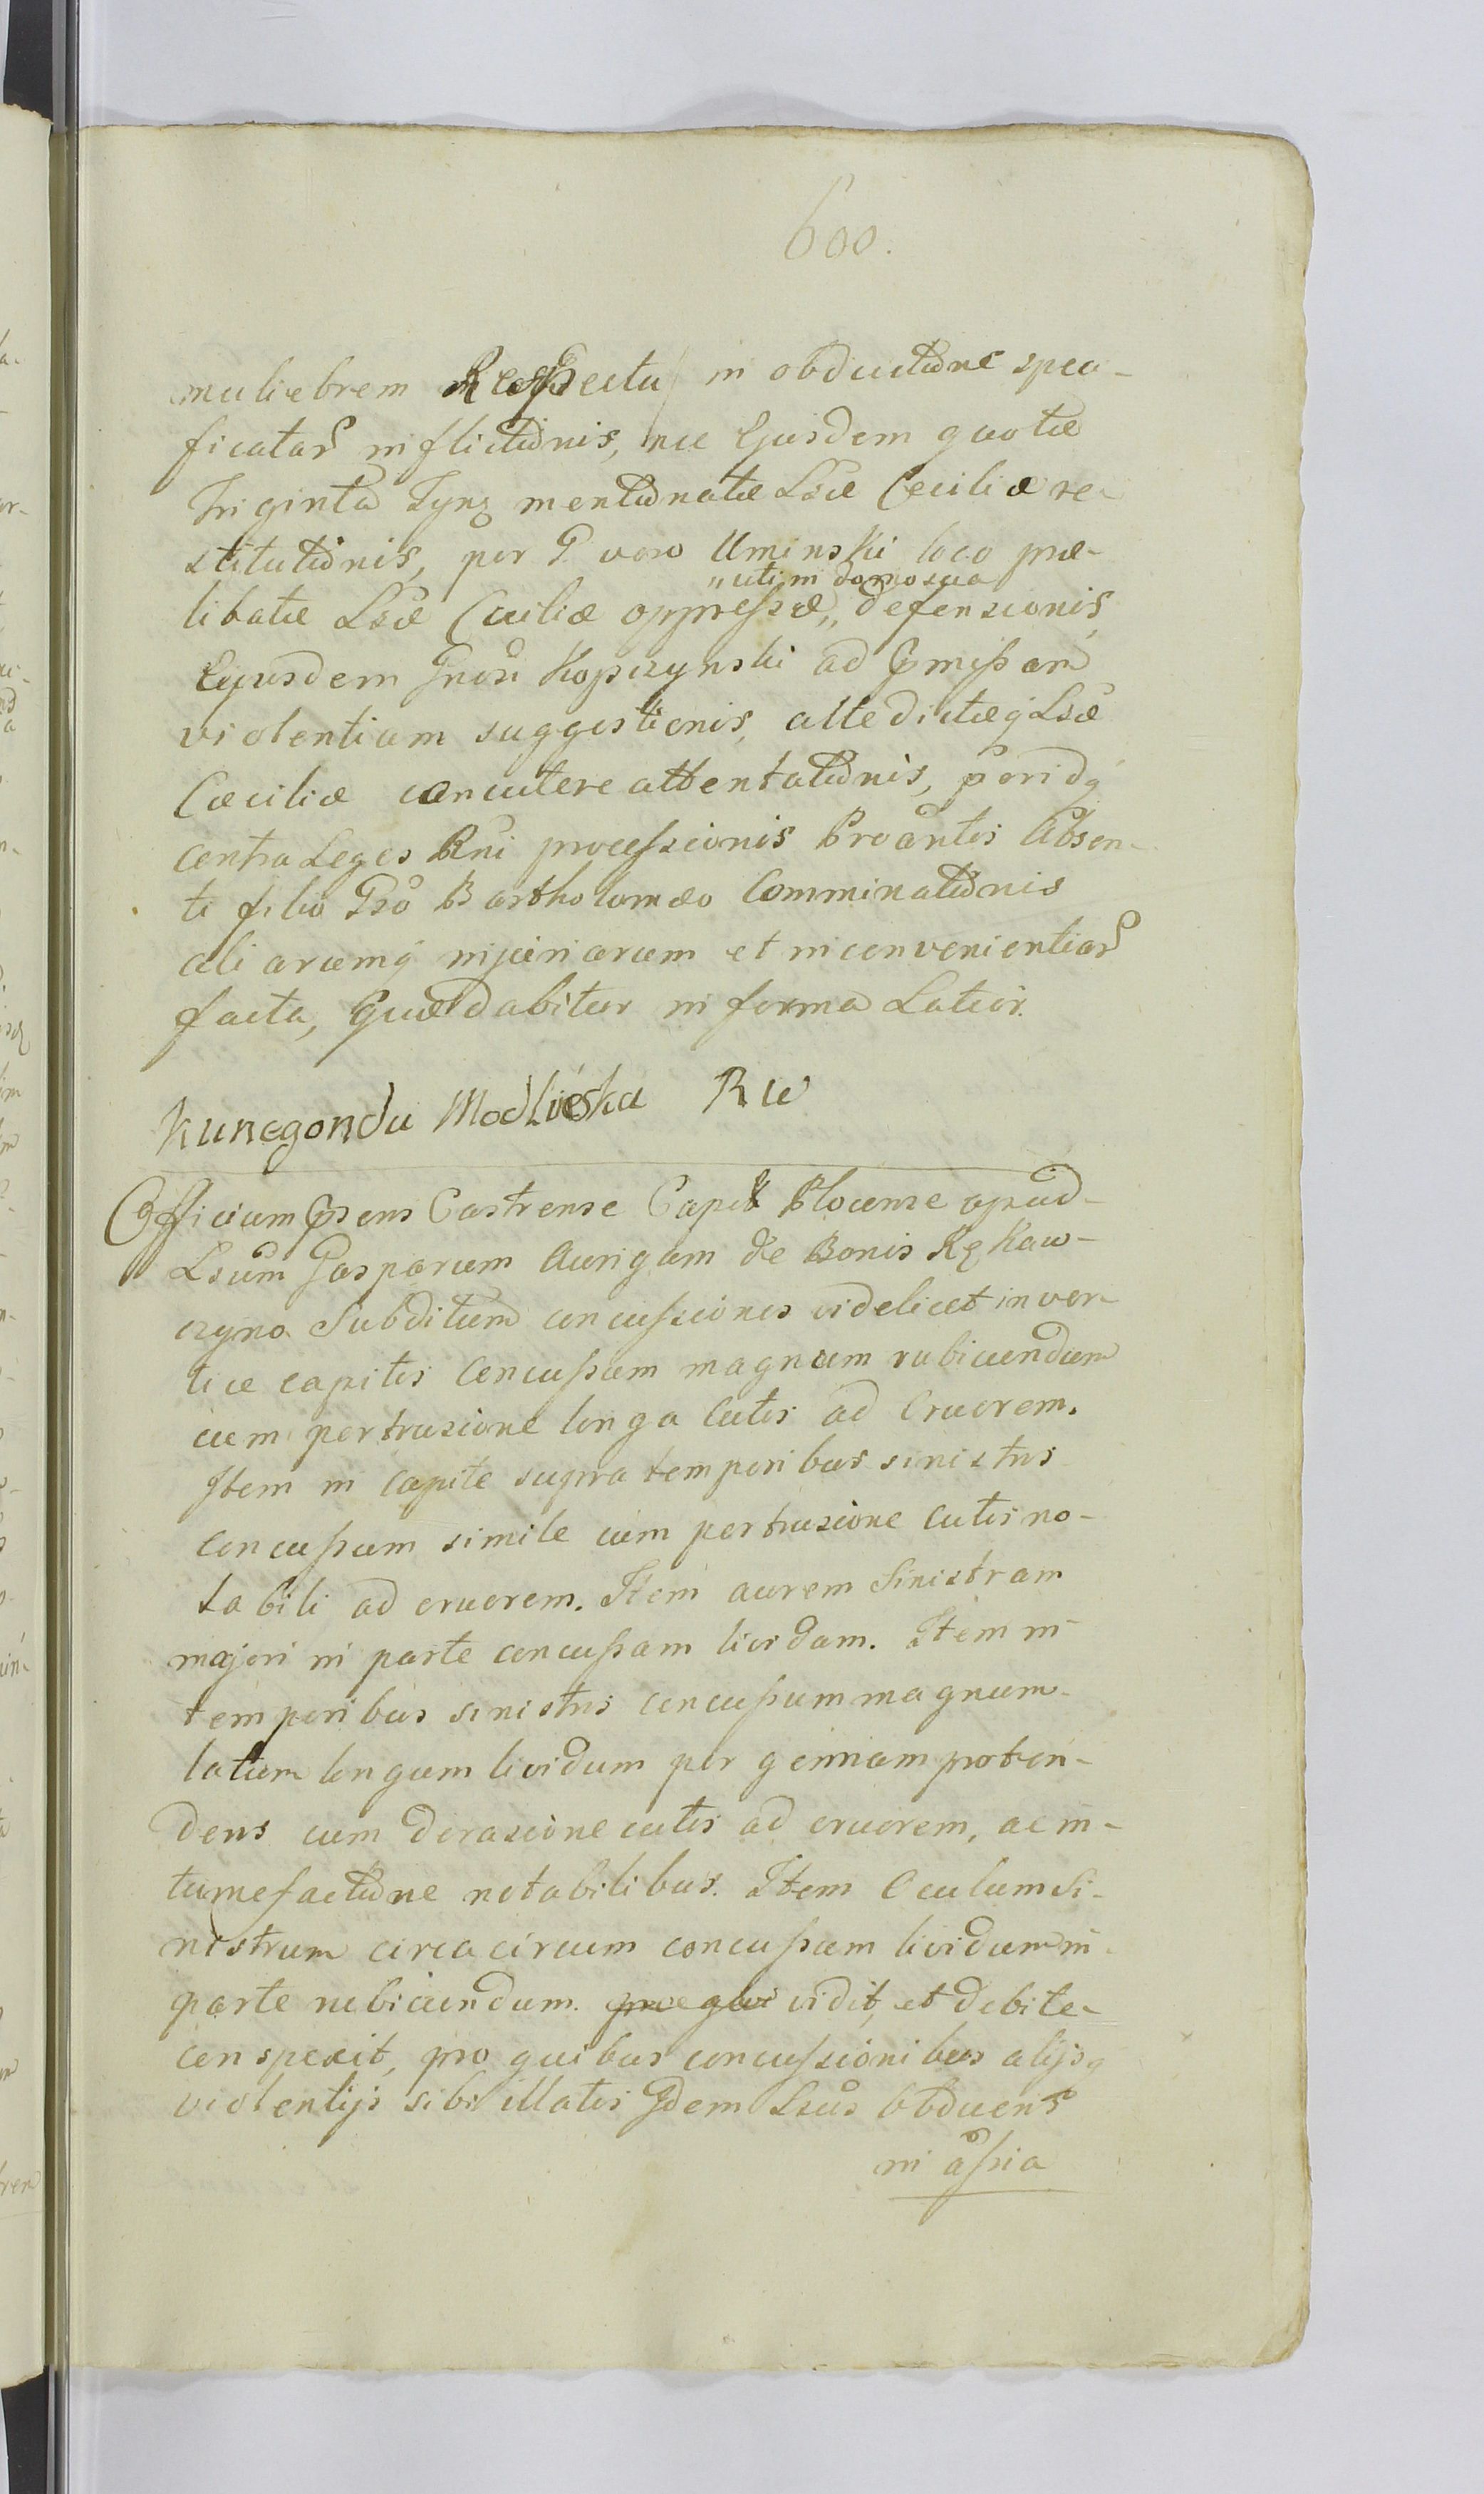 600.
muliebrem Respectu in obductione speci-
ficatar inflictionis, nec Ejusdem quotæ
Triginta Tynf mentionatæ Lsæ Cecilliæ re-
stitutionis, per G. vero Uminski loco præ-
„uti in domo sua
libatæ Lsæ Cæciliæ oppressæ„ defensionis,
Ejusdem Gnosi Kopczynski ad Præmissam
violentiam suggestionis, alte dictæq Lsæ
Cæciliæ concutere attentationis, peridq
contra Leges Rni processionis Proantis Absen-
ti filio Gso Bartholomæo Comminationis
aliarumq injuriarum et inconvenientiar
facta, Quæ dabitur in forma Latior.
Kunegonda Modlieska
Officium Præsens Castrense Capit Plocense apud
Lsum Gasparum Aurigam de Bonis Rękaw-
czyno Subditum concussiones videlicet in ver-
tice capitis Concussum magnum rubicundum
cum pertrusione longa Cutis ad Cruorem.
Item in Capite supra temporibus sinistris
concussum simile cum pertrusione Cutis no-
tabili ad cruorem. Item aurem Sinistram
majori in parte concussam lividam. Item in
temporibus sinistris concussum magnum
latum longum lividum per genam proten-
dens cum derasione cutis ad cruorem, ac in-
tumefactione notabilibus. Item Oculum Si-
nistrum circa circum concussum lividum in
parte rubicundum. vidit, et debite
conspexit, pro quibus concussionibus alijsq
violentijs sibi illatis Idem Lsus Obducens
in assia